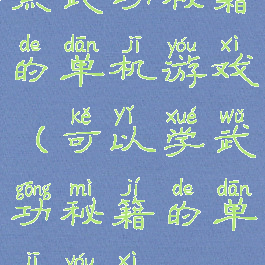 武功秘籍
de dān jī yóu xì
的单机游戏
kě yǐ xué wǔ
（可以学武
gōng mì jí de dān
功秘籍的单
jī yóu xì